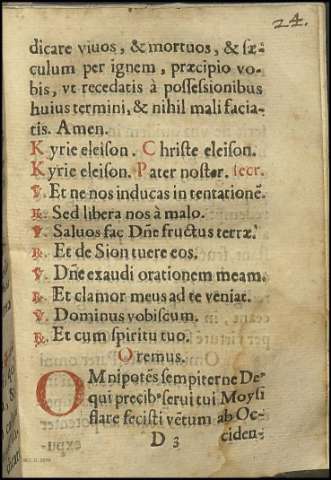 24.
dicare viuos, & mortuos, & sæ-
culum per ignem, præcipio vo-
bis, vt recedatis à possessionibus
huius termini, & nihil mali facia-
tis. Amen.
Kyrie eleison. Christe eleison.
Kyrie eleison. Pater noster. secr.
℣. Et ne nos inducas in tentationē.
℟. Sed libera nos à malo.
℣. Saluos fac Dñe fructus terræ.
℟. Et de Sion tuere eos.
℣. Dñe exaudi orationem meam.
℟. Et clamor meus ad te veniat.
℣. Dominus vobiscum.
℟. Et cum spiritu tuo.
Oremus.
OMnipotēs sempiterne De⁹
qui precib⁹ serui tui Moysi
flare fecisti vētum ab Oc-
D 3 ciden-